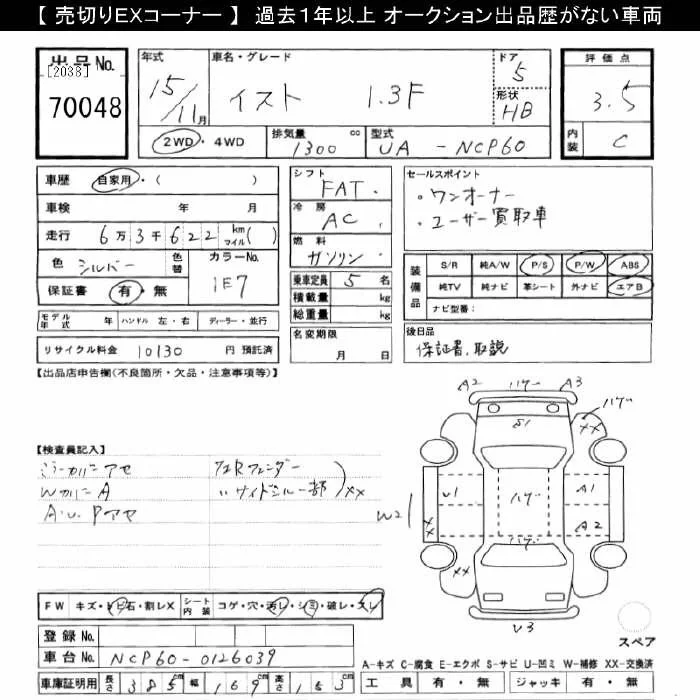 【 売切りEXコーナー 】 過去1年以上 オークション出品歴がない車両
出品No.
[2038]
70048
年式
15/11月
車名・グレード
イスト 1.3F
ドア
5
形状
HB
2WD・4WD
排気量
1300 cc
型式
UA - NCP60
評価点
3.5
内装
C
車歴 自家用・( )
車検 年 月
走行 6万3千622 km マイル( )
色 シルバー 色替
カラーNo.
1E7
保証書 有・無
モデル年式 年 ハンドル 左・右 ディーラー・並行
リサイクル料金 10130 円 預託済
シフト
FAT.
冷房
AC.
燃料
ガソリン
乗車定員 5 名
積載量 kg
総重量 kg
名変期限
月 日
セールスポイント
・ワンオーナー
・ユーザー買取車
装備品
S/R 純A/W P/S P/W ABS
純TV 純ナビ 革シート 外ナビ エアB
ナビ型番:
後日品
保証書、取説
【出品店申告欄(不良箇所・欠品・注意事項等)】
【検査員記入】
ミラーカバーアセ
WカバーA
A.u. Pアセ
リアRフェンダー
〃 サイドシル一部
XX
A2 ハゲ A3
ハゲ
XX
S1
U1 ハゲ A1
W2
XX
A2
XX
U3
スペア
FW キズ・トビ石・割レX シート内装 コゲ・穴・汚レ・シミ・破レ・スレ
登録No.
車台No. NCP60-0126039
車庫証明用 長さ 385cm 幅 169cm 高さ 153cm
A-キズ C-腐食 E-エクボ S-サビ U-凹ミ W-補修 XX-交換済
工具 有・無 ジャッキ 有・無